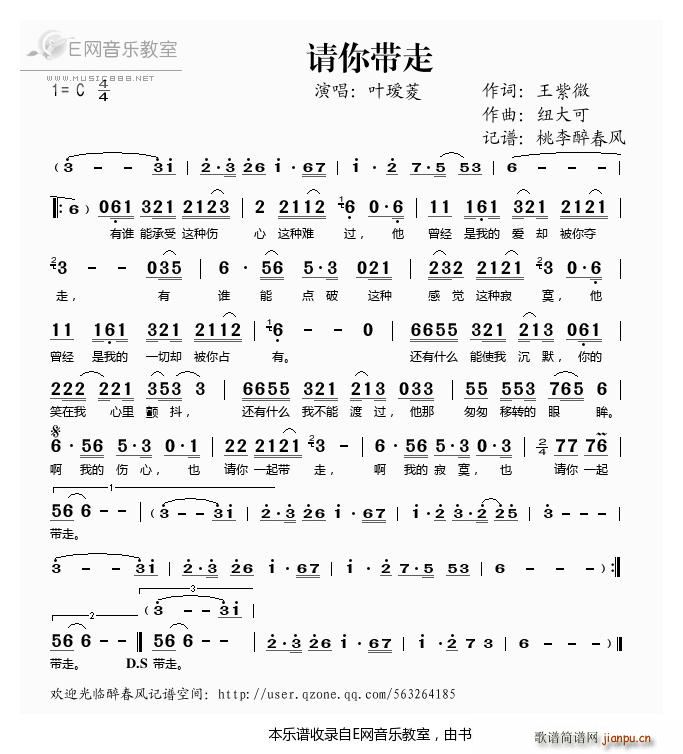 E网音乐教室
WWW.MUSIC888.NET
请你带走
1= C 4/4
演唱：叶瑷菱
作词：王紫微
作曲：纽大可
记谱：桃李醉春风
（3 - - 3i | 2·3 26 i·67 | i - - i 2 | 7·5 53 | 6 - - -
|: 6 ） 061 321 2123 | 2 2112 6 0·6 | 11 161 321 2121
有谁 能承受 这种伤 心 这种难 过， 他 曾经 是我的 爱 却 被你夺
3 - - 035 | 6· 56 5·3 021 | 232 2121 3 0·6
走， 有 谁 能 点 破 这种 感 觉 这种寂 寞， 他
11 161 321 2112 | 6 - - 0 | 6655 321 213 061
曾经 是我的 一切却 被你占 有。 还有什么 能使我 沉 默， 你的
222 221 353 3 | 6655 321 213 033 | 55 553 765 6
笑在我 心里 颤 抖， 还有什么 我不能 渡 过， 他那 匆匆 移转的 眼 眸。
6· 56 5·3 0·1 | 22 2121 3 - | 6· 56 5·3 0·1 | 2/4 77 76
啊 我的 伤 心， 也 请你 一起带 走， 啊 我的 寂 寞， 也 请你 一起
1
56 6 - - （3 - - 3i | 2·3 26 i·67 | i - i 2 | 3·2 25 | 3 - - -
带走。
3 - - 3i | 2·3 26 i·67 | i - - i 2 | 7·5 53 | 6 - - - ）:|
2
3
（3 - - 3i |
56 6 - - || 56 6 - - | 2·3 26 i·67 | i - - i 2 7 3 | 6 - - - ||
带走。 D.S 带走。
欢迎光临醉春风记谱空间：http://user.qzone.qq.com/563264185
本乐谱收录自E网音乐教室，由书
歌谱简谱网
jianpu.cn